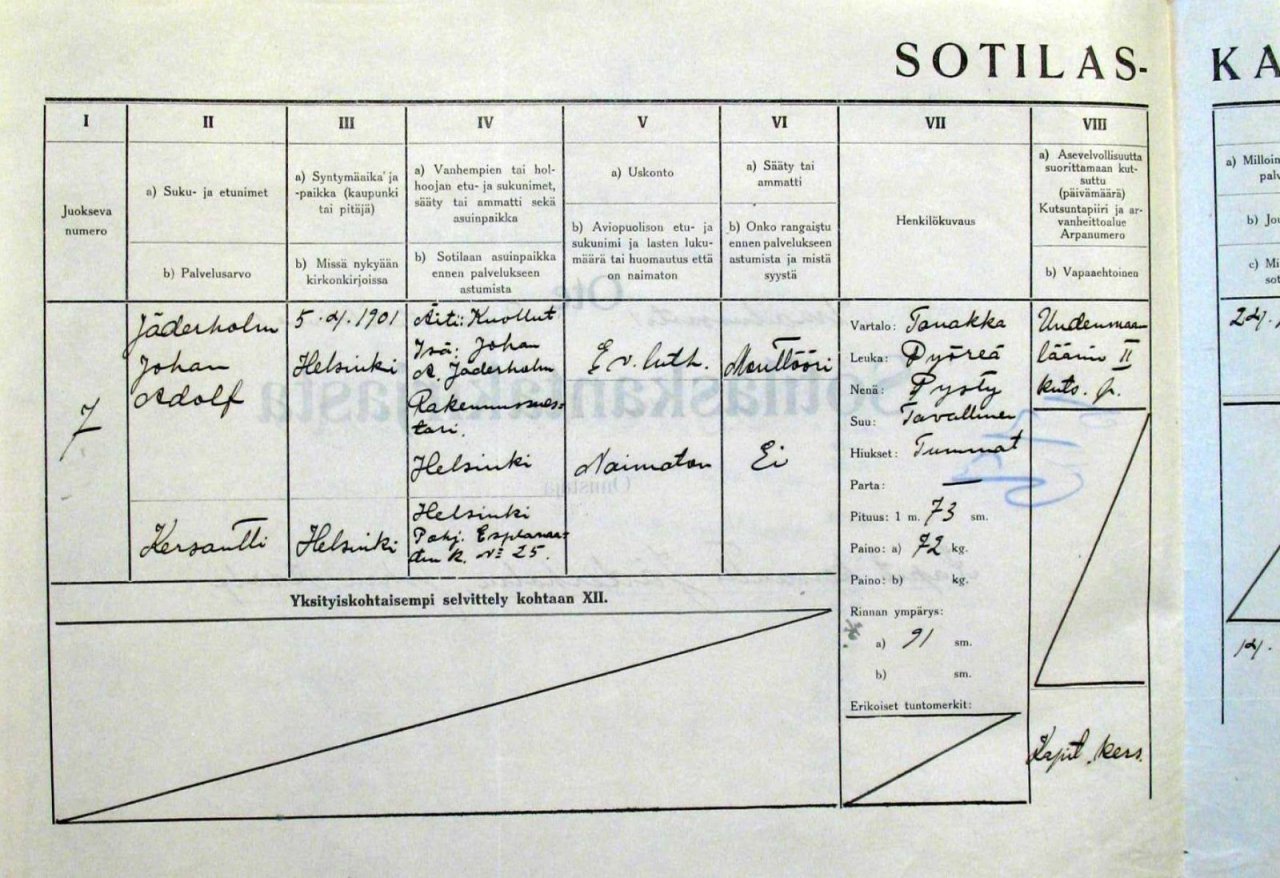 SOTILAS-
KA
I
II
III
IV
V
VI
VII
VIII
Juokseva
numero
a) Suku- ja etunimet
b) Palvelusarvo
a) Syntymäaika ja
-paikka (kaupunki
tai pitäjä)
b) Missä nykyään
kirkonkirjoissa
a) Vanhempien tai hol-
hoojan etu- ja sukunimet,
sääty tai ammatti sekä
asuinpaikka
b) Sotilaan asuinpaikka
ennen palvelukseen
astumista
a) Uskonto
b) Aviopuolison etu- ja
sukunimi ja lasten luku-
määrä tai huomautus että
on naimaton
a) Sääty tai
ammatti
b) Onko rangaistu
ennen palvelukseen
astumista ja mistä
syystä
Henkilökuvaus
a) Asevelvollisuutta
suorittamaan kut-
suttu
(päivämäärä)
Kutsuntapiiri ja ar-
vanheittoalue
Arpanumero
b) Vapaaehtoinen
a) Milloin
palv
b) Jou
c) Mi
sot
7
Jäderholm
Johan
Adolf
Kersantti
5.4.1901
Helsinki
Helsinki
Äiti: Kuollut
Isä: Johan
A. Jäderholm
Rakennusmes-
tari.
Helsinki
Helsinki
Pohj. Esplanaa-
din k. № 25.
Ev. luth.
Naimaton
Monttööri
Ei
Vartalo: Tanakka
Leuka: Pyöreä
Nenä: Pysty
Suu: Tavallinen
Hiukset: Tummat
Parta: —
Pituus: 1 m. 73 sm.
Paino: a) 72 kg.
Paino: b) kg.
Rinnan ympärys:
a) 91 sm.
b) sm.
Erikoiset tuntomerkit:
Uudenmaan
läänin II
kuts. p.
Kapit. kers.
24.
14.
Yksityiskohtaisempi selvittely kohtaan XII.